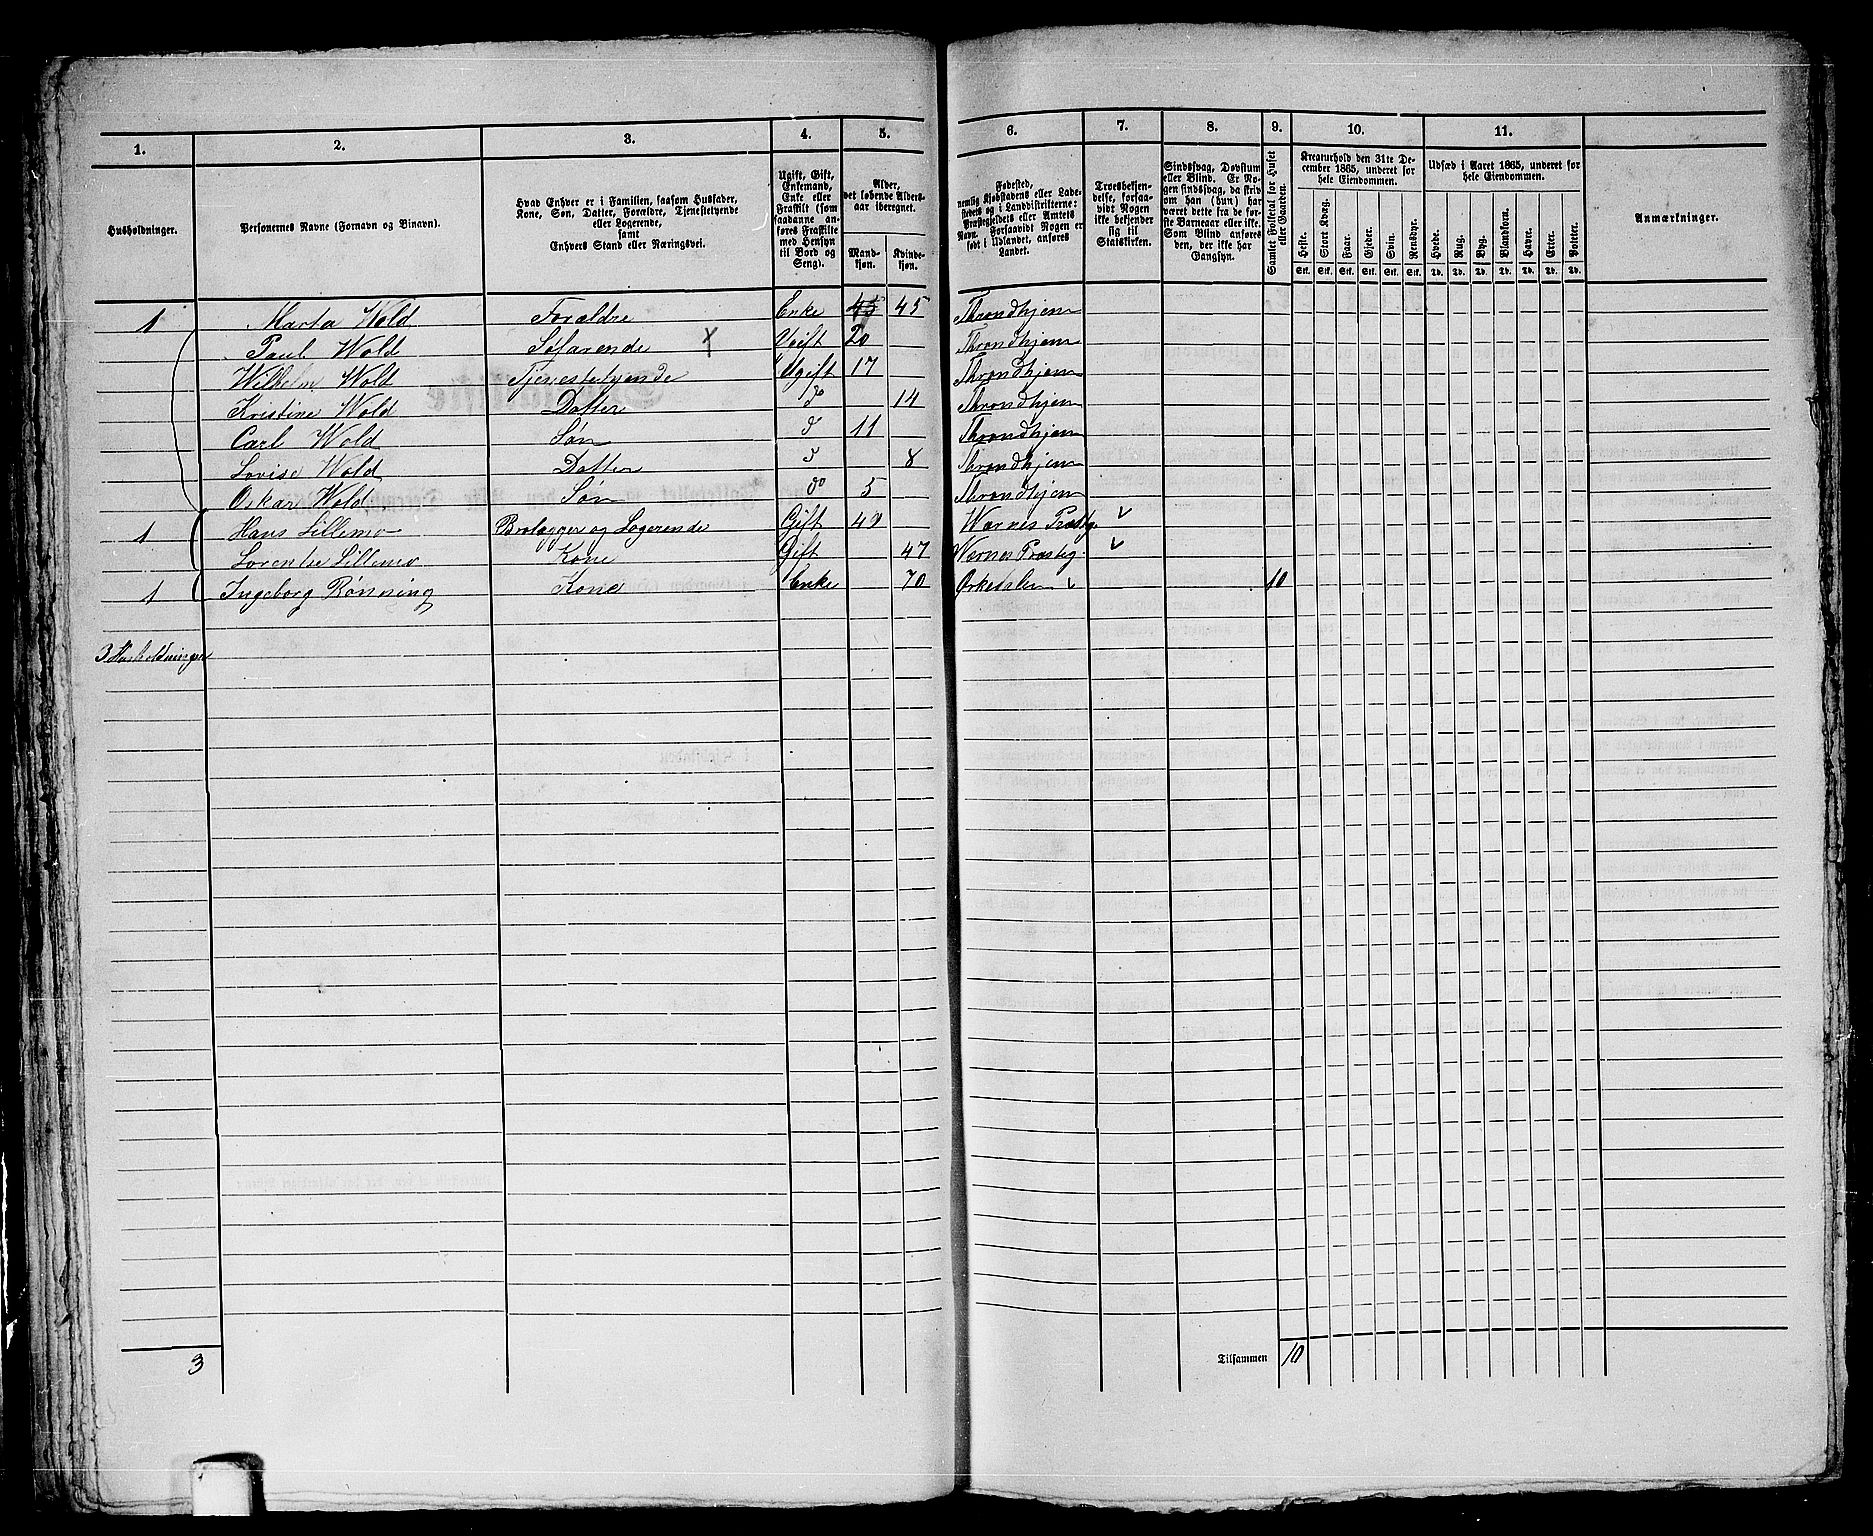 1. 2. 3. 4. 5. 6. 7. 8. 9. 10. 11.
Husholdninger.
Personernes Navne (Fornavn og Binavn).
Hvad Enhver er i Familien, saasom Husfader,
Kone, Søn, Datter, Forældre, Tjenestetyende
eller Logerende,
samt
Enhvers Stand eller Næringsvei.
Ugift, Gift,
Enkemand,
Enke eller
Fraskilt (som
saadanne an-
føres Fraskilte
med Hensyn
til Bord og
Seng).
Alder,
det løbende Alders-
aar iberegnet.
Mand-
kjøn.
Kvinde-
kjøn.
Fødested,
nemlig Kjøbstadens eller Lade-
stedets og i Landdistrikterne:
Præstegjeldets eller Amtets
Navn. Forsaavidt Nogen er
født i Udlandet, anføres
Landet.
Troesbekjen-
delse, forsaa-
vidt Nogen
ikke bekjender
sig til
Statskirken.
Sindssvag, Døvstum
eller Blind. Er No-
gen sindssvag, da skriv
om han (hun) har
været dette fra de før-
ste Barneaar eller ikke.
Som Blind anføres
den, der ikke har
Gangsyn.
Samlet Folketal for Huset
eller Gaarden.
Kreaturhold den 31te De-
cember 1865, underet for
hele Eiendommen.
Heste. Stort Kvæg. Faar. Gjeder. Svin. Rensdyr.
Stk. Stk. Stk. Stk. Stk. Stk.
Udsæd i Aaret 1865, underet for
hele Eiendommen.
Hvede. Rug. Byg. Blandkorn. Havre. Erter. Poteter.
Td. Td. Td. Td. Td. Td. Td.
Anmærkninger.
1 Marta Wold Forældre Enke 45 45 Throndhjem
Paul Wold Søfarende X Ugift 20 Throndhjem
Wilhelm Wold Tjenestetyende Ugift 17 Throndhjem
Kristine Wold Datter do 14 Throndhjem
Carl Wold Søn do 11 Throndhjem
Lovise Wold Datter do 8 Throndhjem
Oskar Wold Søn do 5 Throndhjem
1 Hans Lillemo Brolægger og Logerende Gift Wærnes Præstg.
Lorentse Lillemo Kone Gift 47 Wernes Præsteg.
1 Ingeborg Rönning Kone Enke 70 Orkedalen 10
3 Husholdninger
3 Tilsammen 10